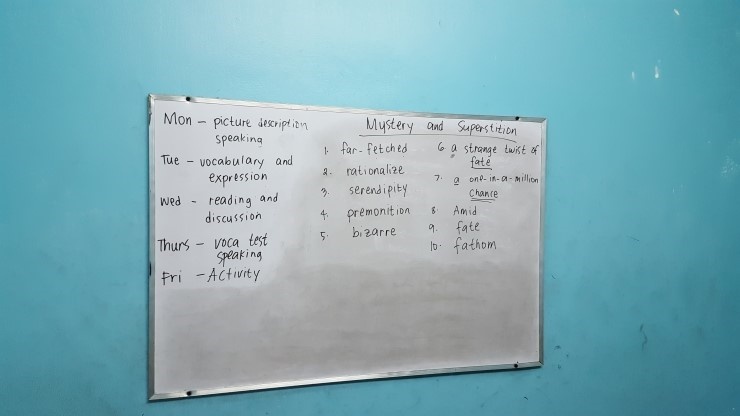 Mon - picture description
speaking
Tue - vocabulary and
expression
Wed - reading and
discussion
Thurs - voca test
speaking
Fri - Activity
Mystery and Superstition
1. far-fetched
2. rationalize
3. serendipity
4. premonition
5. bizarre
6. a strange twist of
fate
7. a one-in-a-million
chance
8. Amid
9. fate
10. fathom